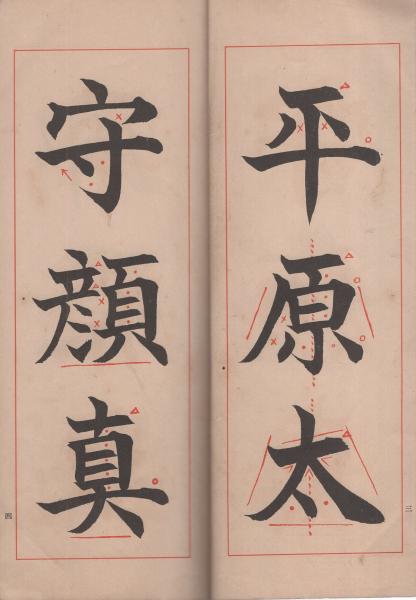 平原太
三
守顔真
四